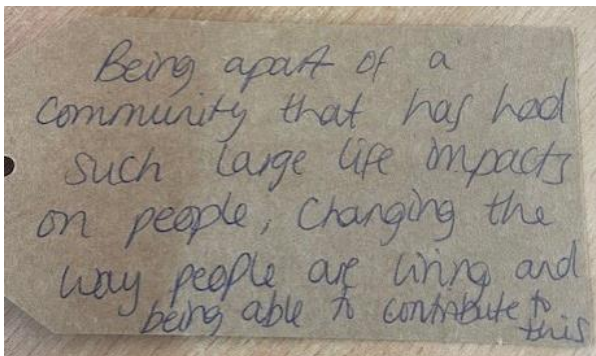 Being apart of a
community that has had
such large life impacts
on people, changing the
way people are living and
being able to contribute to
this